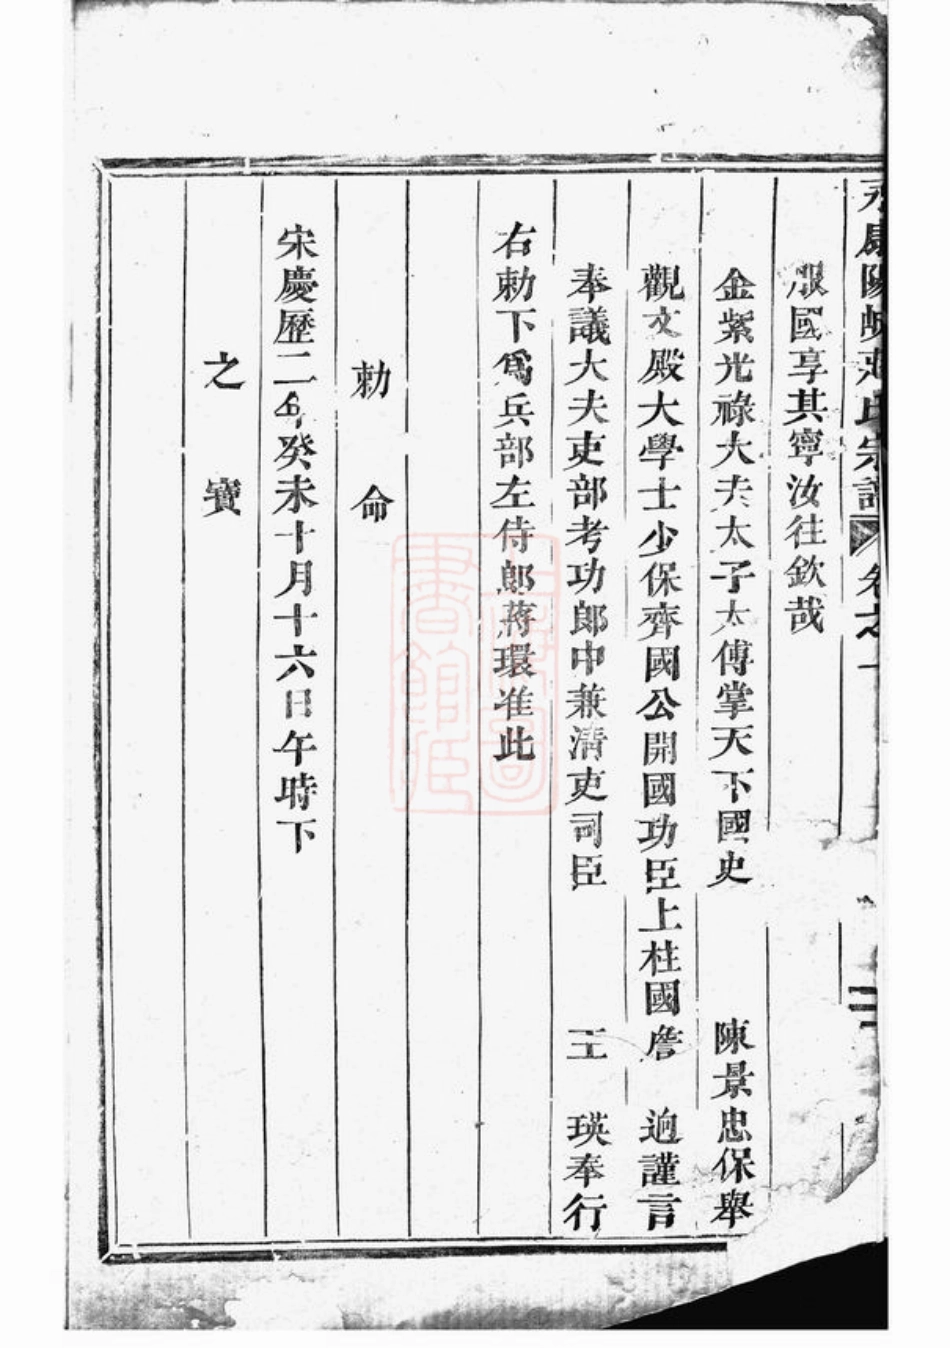 永康陽蔣氏宗譜 卷之一
服國享其寧汝往欽哉
金紫光祿大夫太子太傅掌天下國史 陳景忠保舉
觀文殿大學士少保齊國公開國功臣上柱國 詹 迥謹言
奉議大夫吏部考功郎中兼清吏司臣 王 瑛奉行
右勅下爲兵部左侍郎蔣環准此
勅命
宋慶歷二年癸未十月十六日午時下
之寶